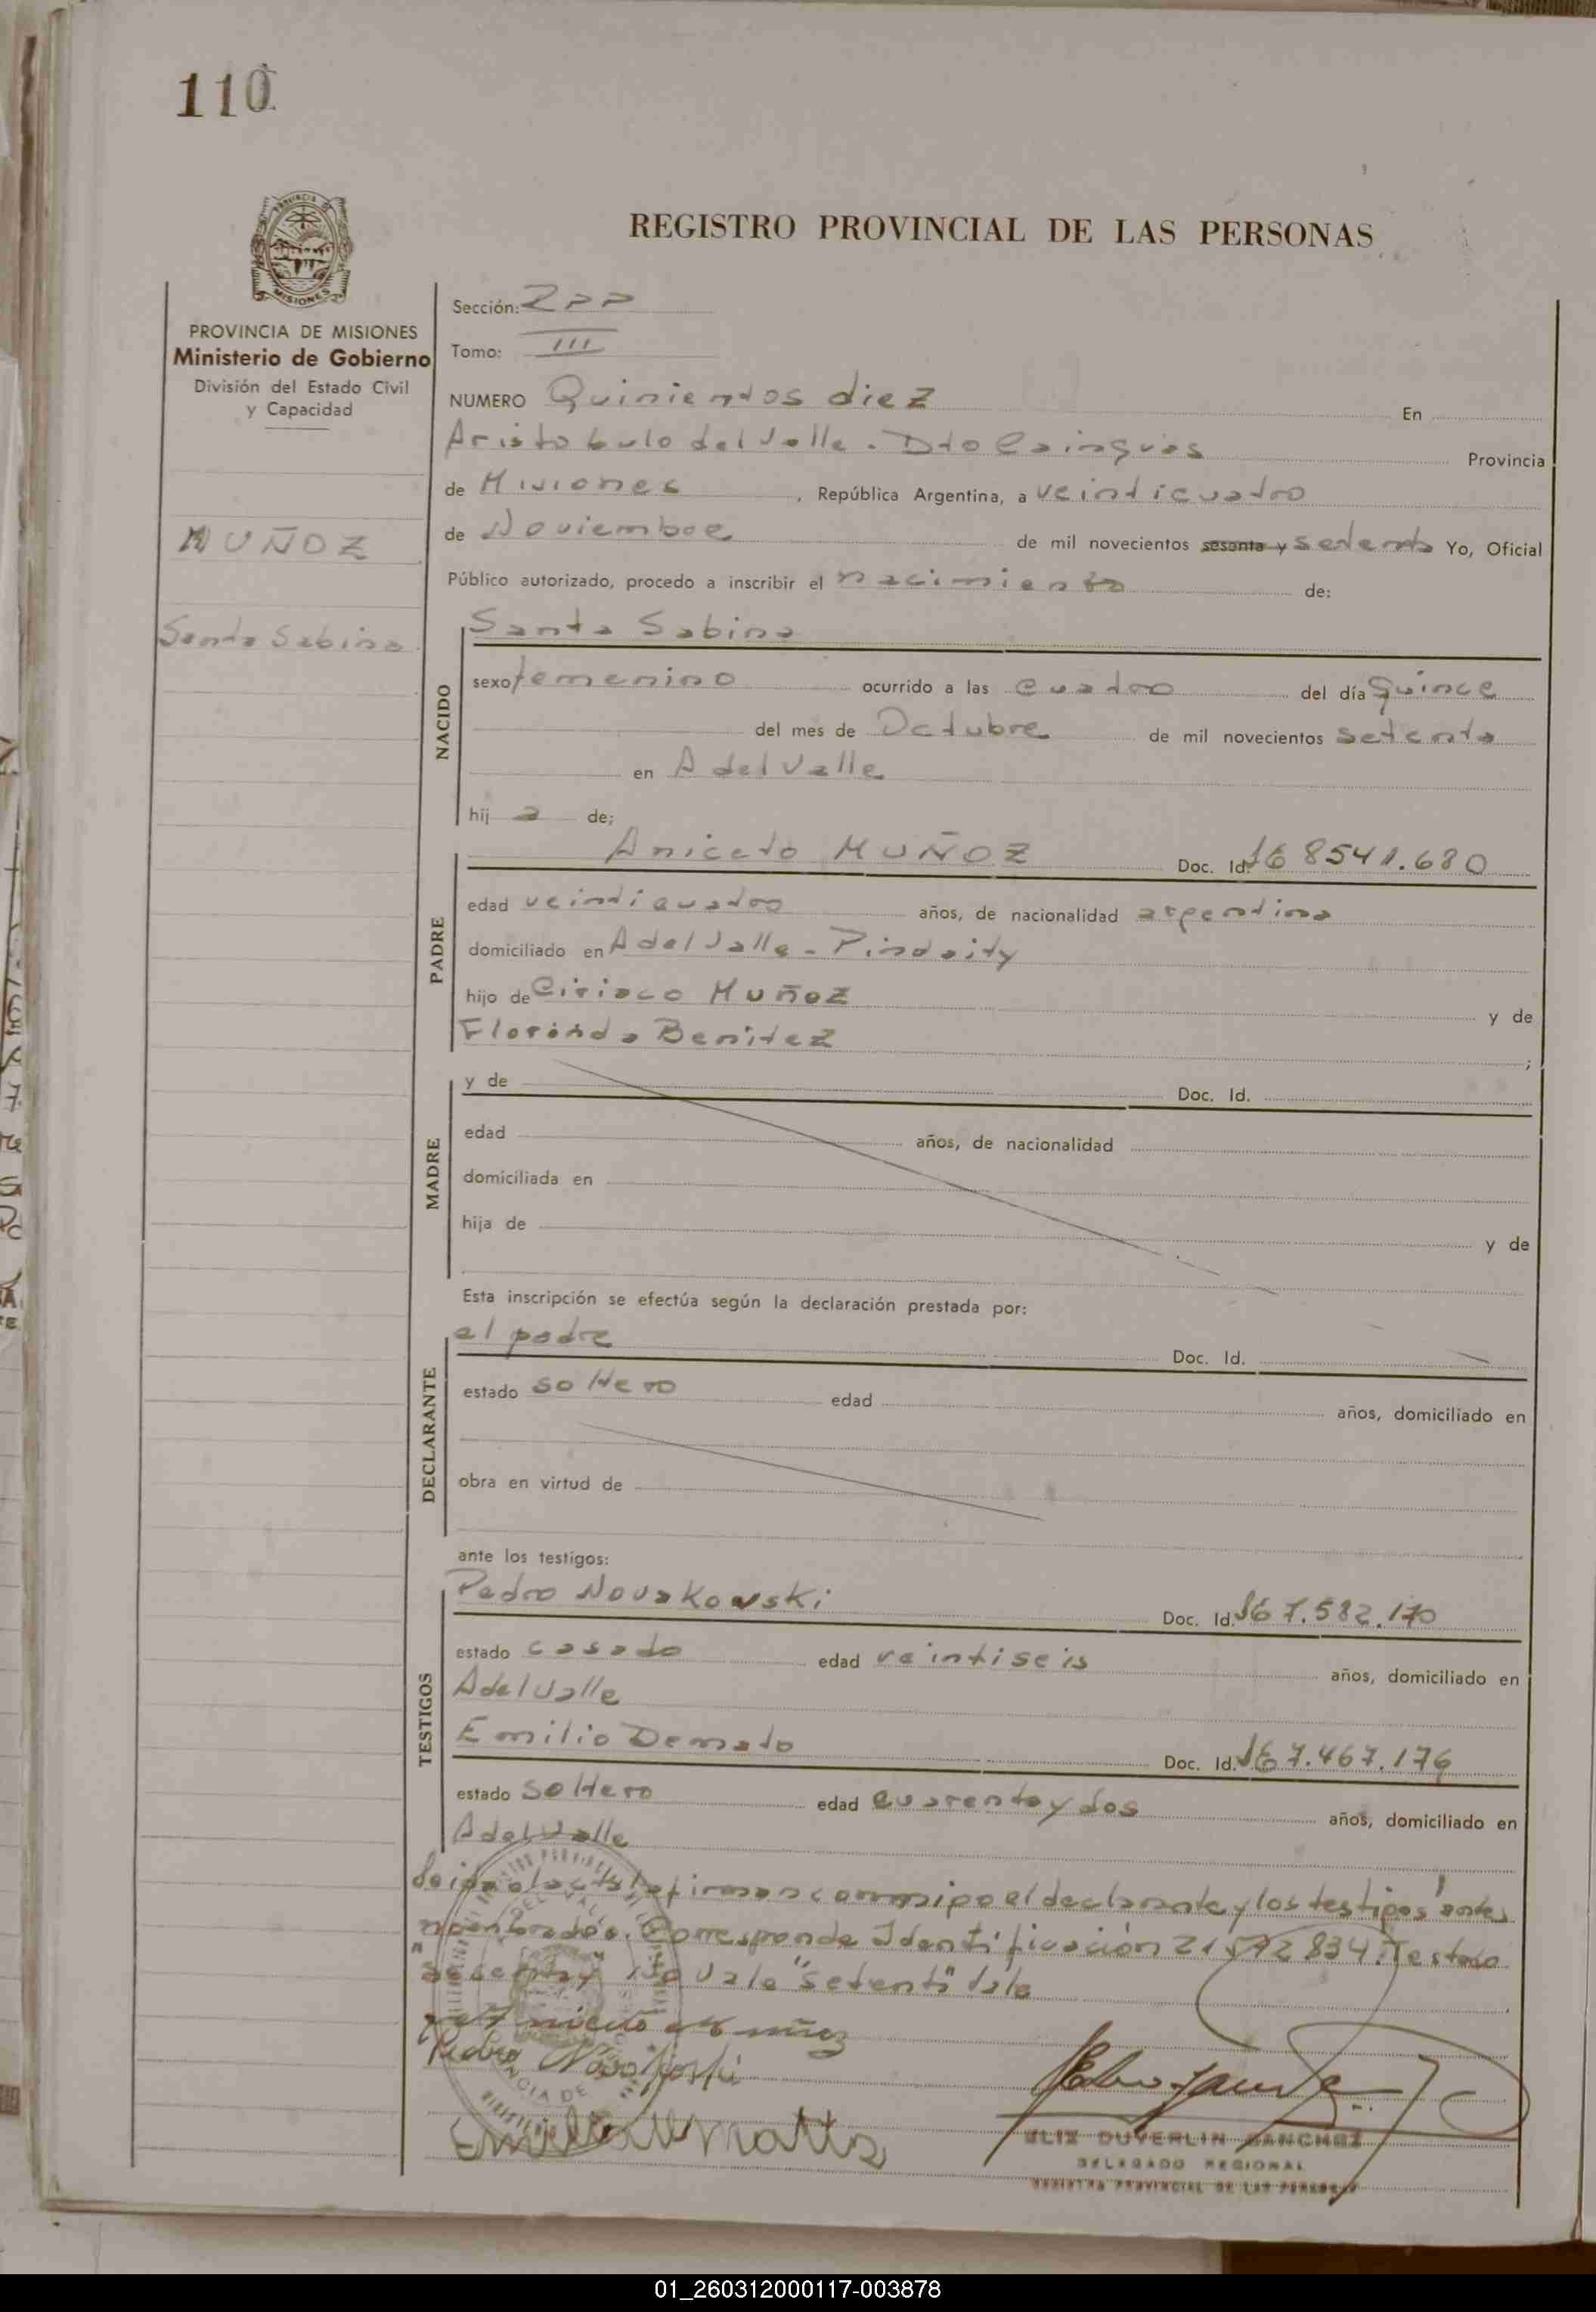 110
REGISTRO PROVINCIAL DE LAS PERSONAS
PROVINCIA DE MISIONES
Ministerio de Gobierno
División del Estado Civil
y Capacidad
MUÑOZ
Santa Sabina
Sección: 2da
Tomo: III
NUMERO Quinientos diez En
Aristobulo del Valle. Dto Cainguas Provincia
de Misiones, República Argentina, a veinticuatro
de Noviembre de mil novecientos sesenta y setenta Yo, Oficial
Público autorizado, procedo a inscribir el nacimiento de:
NACIDO
Santa Sabina
sexo femenino ocurrido a las cuatro del día quince
del mes de Octubre de mil novecientos setenta
en A del Valle
hij a de;
PADRE
Aniceto MUÑOZ Doc. Id. 8541.680
edad veinticuatro años, de nacionalidad argentina
domiciliado en A del Valle - Pindaity
hijo de Ciriaco Muñoz y de
Florinda Benitez ;
MADRE
y de Doc. Id.
edad años, de nacionalidad
domiciliada en
hija de y de
Esta inscripción se efectúa según la declaración prestada por:
DECLARANTE
el padre Doc. Id.
estado soltero edad años, domiciliado en
obra en virtud de
ante los testigos:
TESTIGOS
Pedro Novakowski Doc. Id. 7.582.170
estado casado edad veintiseis años, domiciliado en
A del Valle
Emilio Demato Doc. Id. 7.467.176
estado soltero edad cuarenta y dos años, domiciliado en
A del Valle
Leida el acta la firman conmigo el declarante y los testigos antes
nombrados. Corresponde Identificación 21572834. Testado
"sesenta y" no vale "setenta" vale
Pedro Novakoski
ELIX DUVERLIN SANCHEZ
DELEGADO REGIONAL
REGISTRO PROVINCIAL DE LAS PERSONAS
01_260312000117-003878